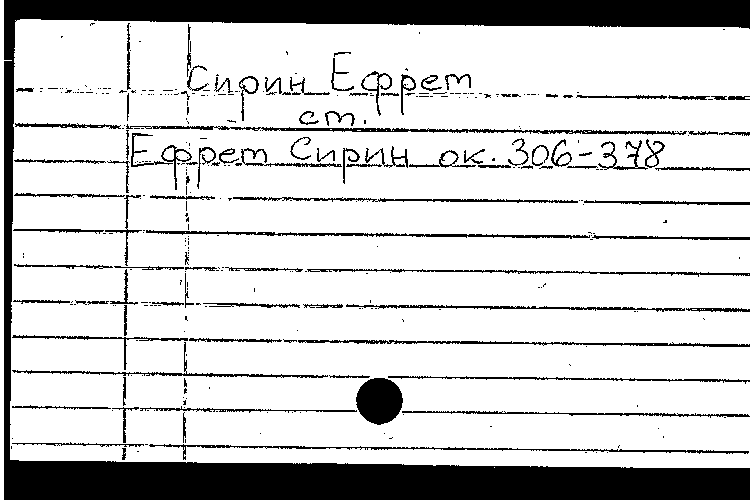 Сирин Ефрет
ст.
Ефрет Сирин ок. 306-378